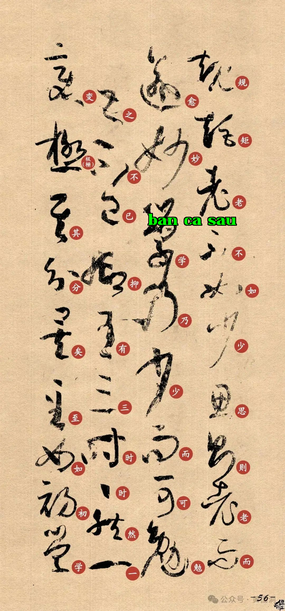 规矩老不如少思则老而
愈妙学乃少而可勉
之不已抑有三时时然一
变极其分矣至如初学
ban ca sau
公众号
-56-